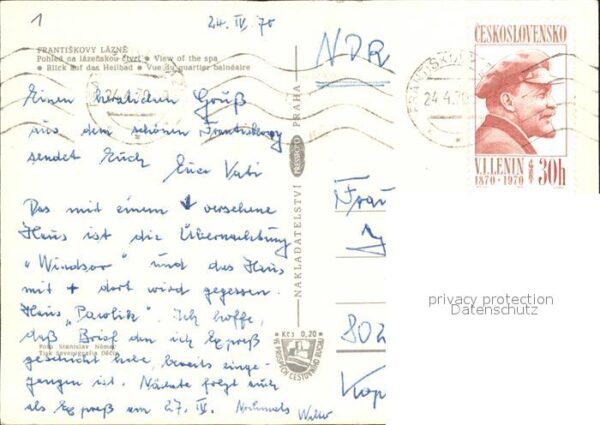 1
24. IV. 70
FRANTIŠKOVY LÁZNĚ
Pohled na lázeňskou čtvrť • View of the spa
• Blick auf das Heilbad • Vue du quartier balnéaire
24.4.70
Einen herzlichen Gruß
aus dem schönen
sendet Euch
Euer Vati
Das mit einem ↓ versehene
Haus ist die Übernachtung
"Windsor" und das Haus
mit + dort wird gegessen.
Haus "Pavolik". Ich hoffe,
daß Brief den ich Expreß
geschickt habe, bereits einge-
gangen ist. Nächste folgt auch
als Expreß am 27. IV. Nochmals
Foto Stanislav Němec
Tisk Severografia Děčín
NAKLADATELSTVÍ PRESSFOTO PRAHA
Kčs 0,20
VE PROSPĚCH CESTOVNÍHO RUCHU
NDR
24.4.70
ČESKOSLOVENSKO
V.I.LENIN
1870 • 1970
30h
Frau
802
Kop
privacy protection
Datenschutz